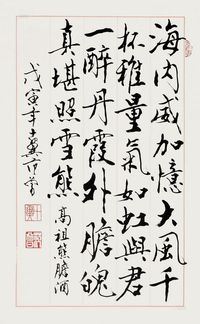 海内威加憶大風千
杯雅量氣如虹與君
一醉丹霞外膽魄
真堪照雪熊 高祖熊膽酒
戊寅年十翼范曾